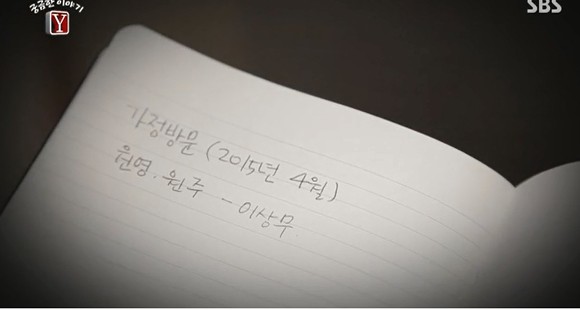 궁금한 이야기
Y
SBS
가정방문 (2015년 4월)
원영. 원주 - 이상무